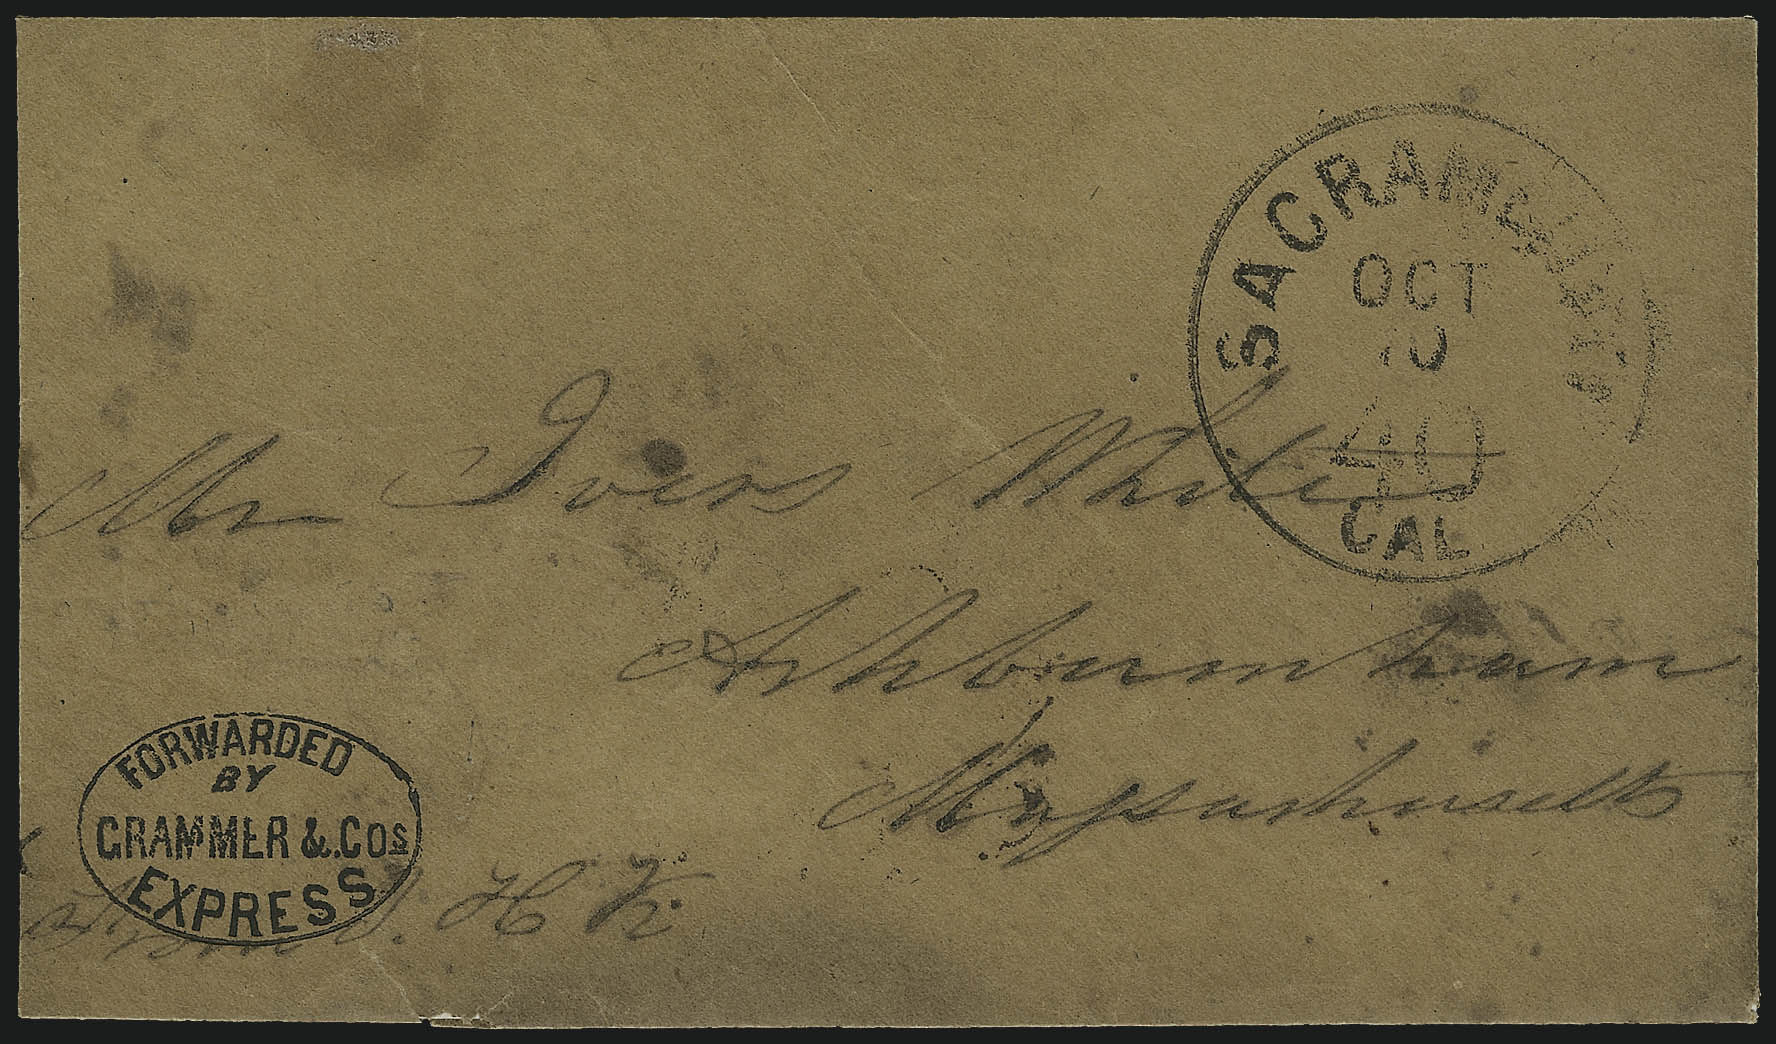 SACRAMENTO
OCT
10
40
CAL
Mr Ivers White
Ashburnham
Massachusetts
FORWARDED
BY
CRAMMER & COS
EXPRESS
From J. H. K.